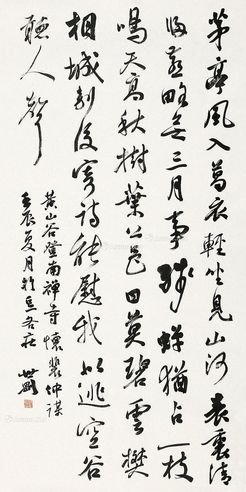 茅亭風入葛衣輕坐見山河表裏清
歸燕略無三月事殘蟬猶占一枝
鳴天高秋樹葉公邑日莫碧雲樊
相城別後寄詩能慰我似逃空谷
聽人聲
黃山谷登南禪寺懷裴仲謀
壬辰夏月於